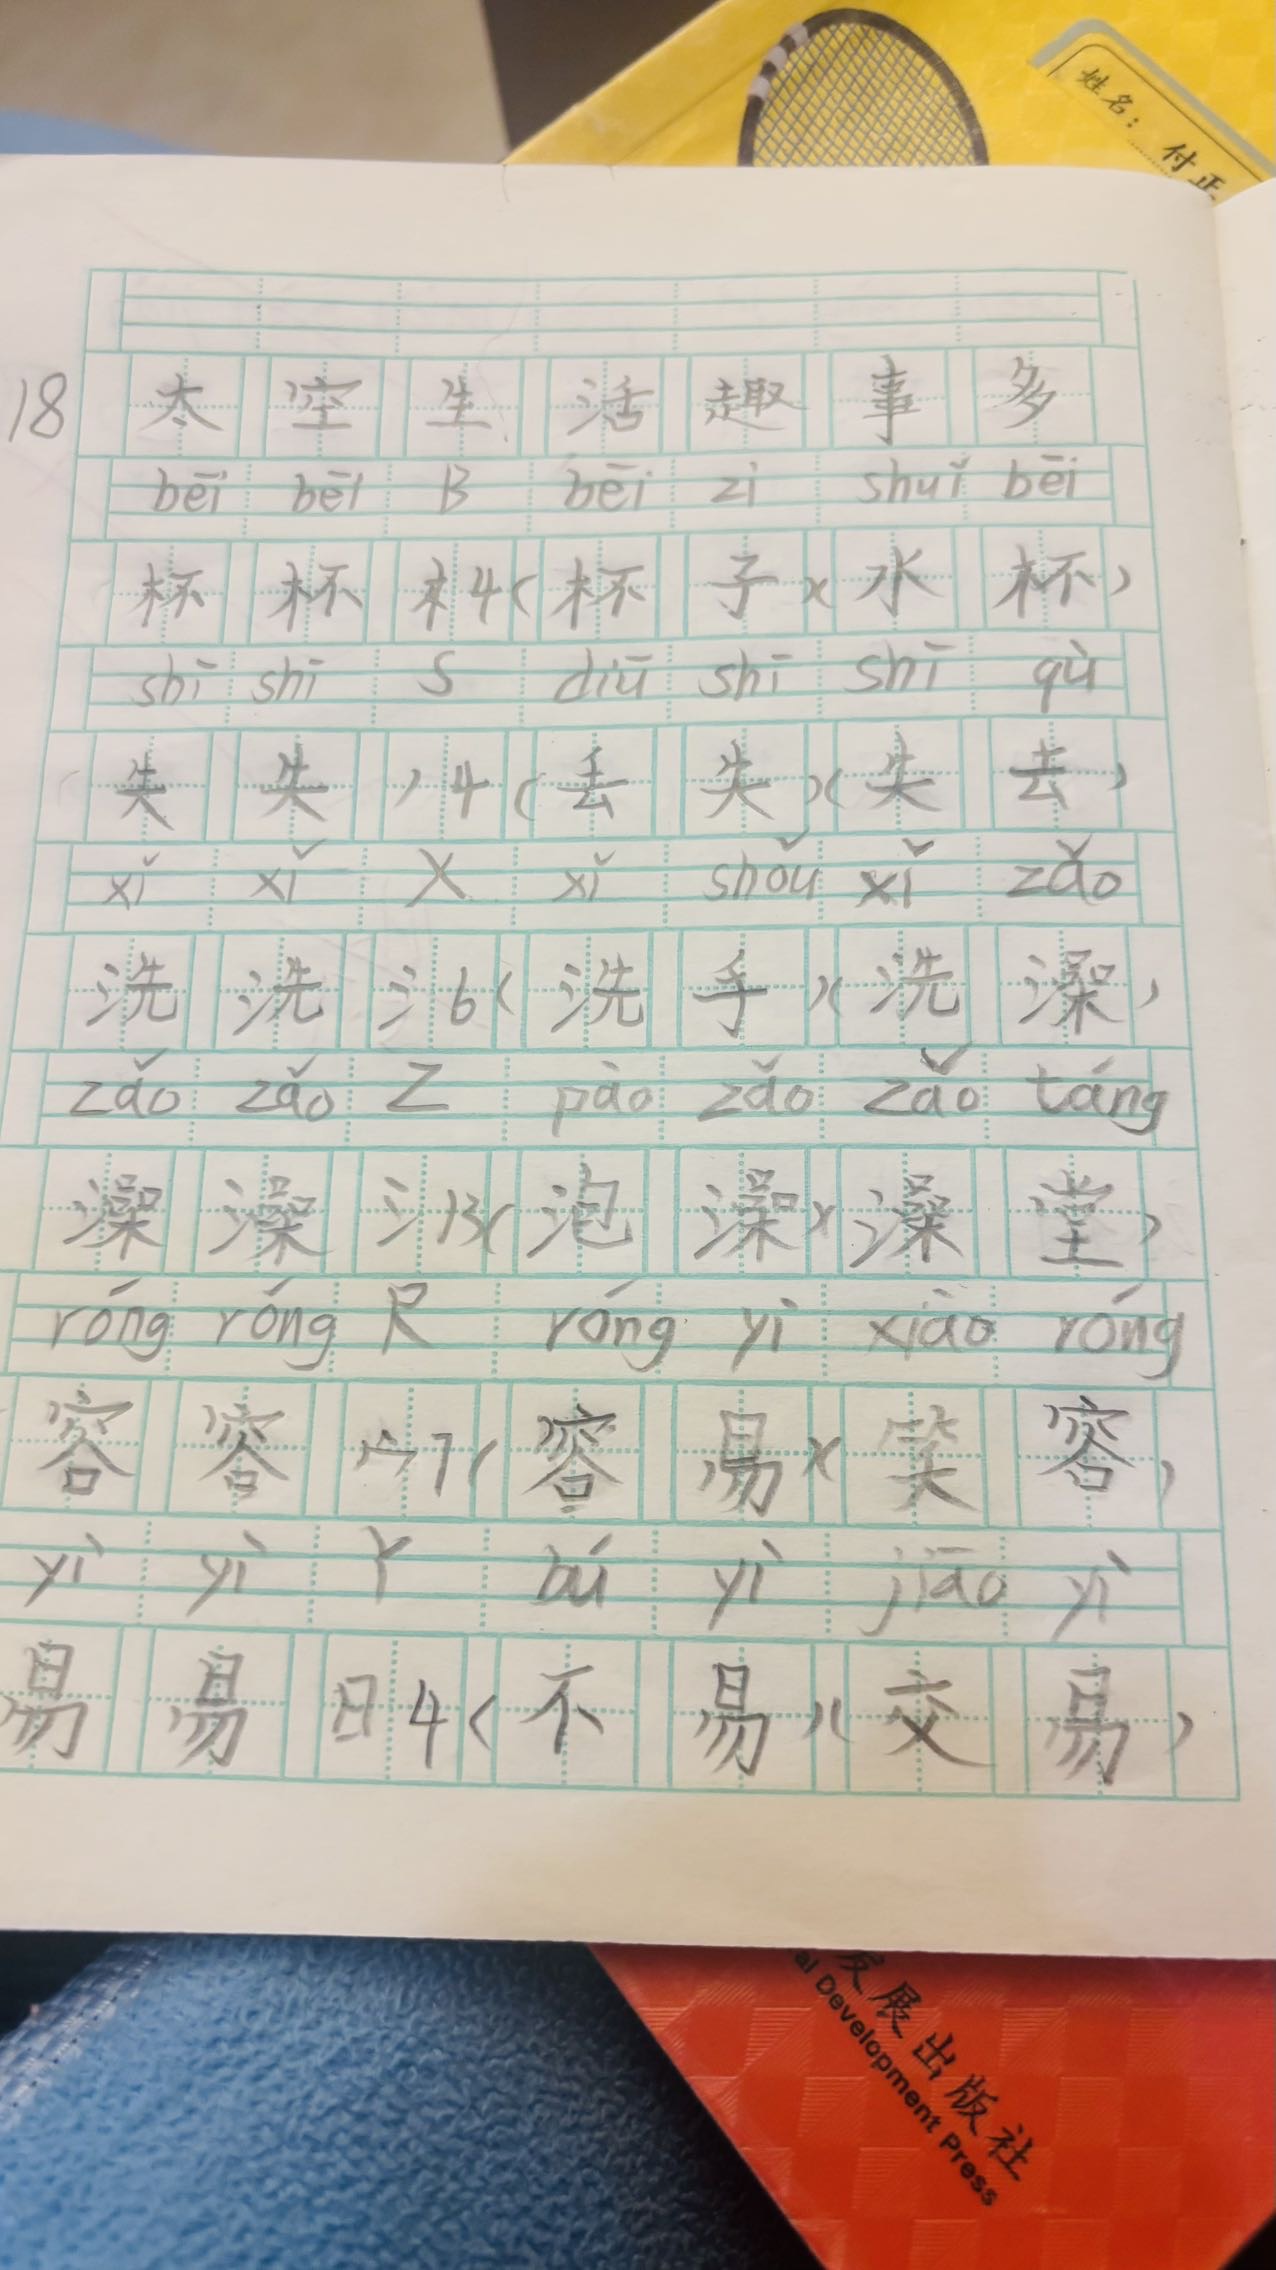 姓名：付正
18 太空生活趣事多
bēi bēi B bēi zi shuǐ bēi
杯 杯 木4(杯子)(水杯)
shī shī S diū shī shī qù
失 失 丿4(丢失)(失去)
xǐ xǐ X xǐ shǒu xǐ zǎo
洗 洗 氵6(洗手)(洗澡)
zǎo zǎo Z pào zǎo zǎo táng
澡 澡 氵13(泡澡)(澡堂)
róng róng R róng yì xiào róng
容 容 宀7(容易)(笑容)
yì yì Y bú yì jiāo yì
易 易 日4(不易)(交易)
发展出版社
al Development Press